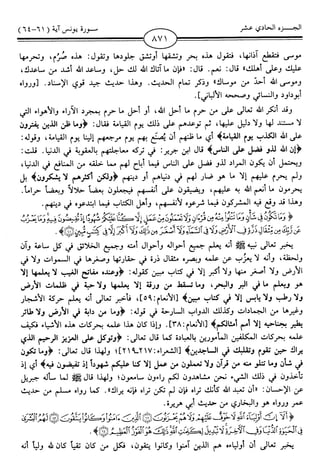 الجـــزء الحادي عشر
٨٧١
سـورة يونس آية (٦١-٦٤)
موسى فتقطع آذانها، فتقول هذه بحر وتشقها أوتشق جلودها وتقول: هذه صُرُم، وتحرمها
عليك وعلى أهلك» قال: نعم. قال: «فإن ما آتاك الله لك حل، وساعد الله أشد من ساعدك،
وموسى الله أحدّ من موساك» وذكر تمام الحديث. وهذا حديث جيد قوي الإسناد. [ورواه
أبوداود والنسائي وصححه الألباني].
وقد أنكر الله تعالى على من حرم ما أحل الله، أو أحل ما حرم بمجرد الآراء والأهواء التي
لا مستند لها ولا دليل عليها، ثم توعدهم على ذلك يوم القيامة فقال: ﴿وما ظن الذين يفترون
على الله الكذب يوم القيامة﴾ أي ما ظنهم أن يُصنع بهم يوم مرجعهم إلينا يوم القيامة، وقوله:
﴿إن الله لذو فضل على الناس﴾ قال ابن جرير: في تركه معاجلتهم بالعقوبة في الدنيا. قلت:
ويحتمل أن يكون المراد لذو فضل على الناس فيما أباح لهم مما خلقه من المنافع في الدنيا،
ولم يحرم عليهم إلا ما هو ضار لهم في دنياهم أو دينهم ﴿ولكن أكثرهم لا يشكرون﴾ بل
يحرمون ما أنعم الله به عليهم، ويضيقون على أنفسهم فيجعلون بعضاً حلالاً وبعضاً حراماً.
وهذا قد وقع فيه المشركون فيما شرعوه لأنفسهم، وأهل الكتاب فيما ابتدعوه في دينهم.
﴿وَمَا تَكُونُ فِي شَأْنٍ وَمَا تَتْلُو مِنْهُ مِن قُرْآنٍ وَلَا تَعْمَلُونَ مِنْ عَمَلٍ إِلَّا كُنَّا عَلَيْكُمْ شُهُودًا إِذْ تُفِيضُونَ فِيهِ وَمَا يَعْزُبُ
عَن رَّبِّكَ مِن مِّثْقَالِ ذَرَّةٍ فِي الْأَرْضِ وَلَا فِي السَّمَاءِ وَلَا أَصْغَرَ مِن ذَٰلِكَ وَلَا أَكْبَرَ إِلَّا فِي كِتَابٍ مُّبِينٍ﴾
يخبر تعالى نبيه ﷺ أنه يعلم جميع أحواله وأحوال أمته وجميع الخلائق في كل ساعة وآن
ولحظة، وأنه لا يعزب عن علمه وبصره مثقال ذرة في حقارتها وصغرها في السموات ولا في
الأرض ولا أصغر منها ولا أكبر إلا في كتاب مبين كقوله: ﴿وعنده مفاتح الغيب لا يعلمها إلا
هو ويعلم ما في البر والبحر، وما تسقط من ورقة إلا يعلمها ولا حبة في ظلمات الأرض
ولا رطب ولا يابس إلا في كتاب مبين﴾ [الأنعام:٥٩]، فأخبر تعالى أنه يعلم حركة الأشجار
وغيرها من الجمادات وكذلك الدواب السارحة في قوله: ﴿وما من دابة في الأرض ولا طائر
يطير بجناحيه إلا أمم أمثالكم﴾ [الأنعام:٣٨]. وإذا كان هذا علمه بحركات هذه الأشياء فكيف
علمه بحركات المكلفين المأمورين بالعبادة كما قال تعالى: ﴿وتوكل على العزيز الرحيم الذي
يراك حين تقوم وتقلبك في الساجدين﴾ [الشعراء:٢١٧-٢١٩] ولهذا قال تعالى: ﴿وما تكون
في شأن وما تتلو منه من قرآن ولا تعملون من عمل إلا كنا عليكم شهوداً إذ تفيضون فيه﴾ أي إذ
تأخذون في ذلك الشيء نحن مشاهدون لكم راءون سامعون؛ ولهذا قال ﷺ لما سأله جبريل
عن الإحسان: «أن تعبد الله كأنك تراه فإن لم تكن تراه فإنه يراك». كما رواه مسلم من حديث
عمر ورواه هو والبخاري من حديث أبي هريرة.
﴿أَلَا إِنَّ أَوْلِيَاءَ اللَّهِ لَا خَوْفٌ عَلَيْهِمْ وَلَا هُمْ يَحْزَنُونَ الَّذِينَ آمَنُوا وَكَانُوا يَتَّقُونَ لَهُمُ الْبُشْرَىٰ
فِي الْحَيَاةِ الدُّنْيَا وَفِي الْآخِرَةِ لَا تَبْدِيلَ لِكَلِمَاتِ اللَّهِ ذَٰلِكَ هُوَ الْفَوْزُ الْعَظِيمُ﴾
يخبر تعالى أن أولياءه هم الذين آمنوا وكانوا يتقون، فكل من كان تقياً كان لله ولياً أنه